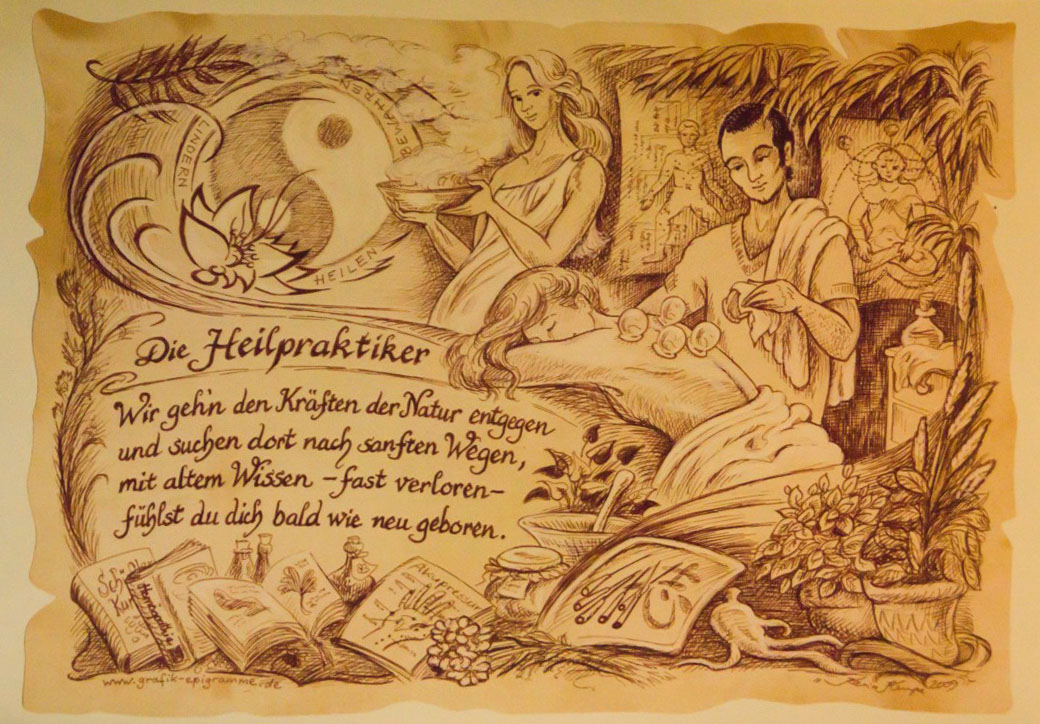 LINDERN
BEWAHREN
HEILEN
Die Heilpraktiker
Wir geh'n den Kräften der Natur entgegen
und suchen dort nach sanften Wegen,
mit altem Wissen – fast verloren –
fühlst du dich bald wie neu geboren.
Homöopathie
Akupressur
www.grafik-epigramme.de
2009